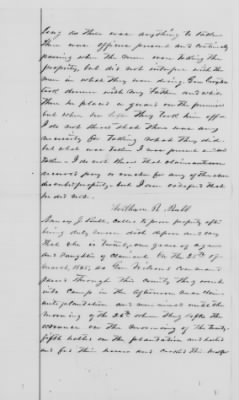 long as there was anything to take
There was officers present and certainly
passing when the men were taking the
property, but did not interfere with the
men in what they were doing Gen
took dinner with my Father and while
there he placed a guard on the premises
but when he left they took him off
I do not think that there was any
necessity for taking what they did
but what was taken I was present and saw
taken I do not think that claimant ever
received pay or voucher for any of the
property but I am satisfied that
he did not.
William R. Bull
J. Bull, called to prove property after
being duly sworn doth depose and say
that she is twenty one years of age
and daughter of claimant On the 25th of
March 1865, as Gen command
passed through this county they went
into camp in the afternoon
plantation and remained until the
morning of the 26th when they left the
on the morning of the twenty
fifth halted on the plantation and
and fed their horses and cooked their